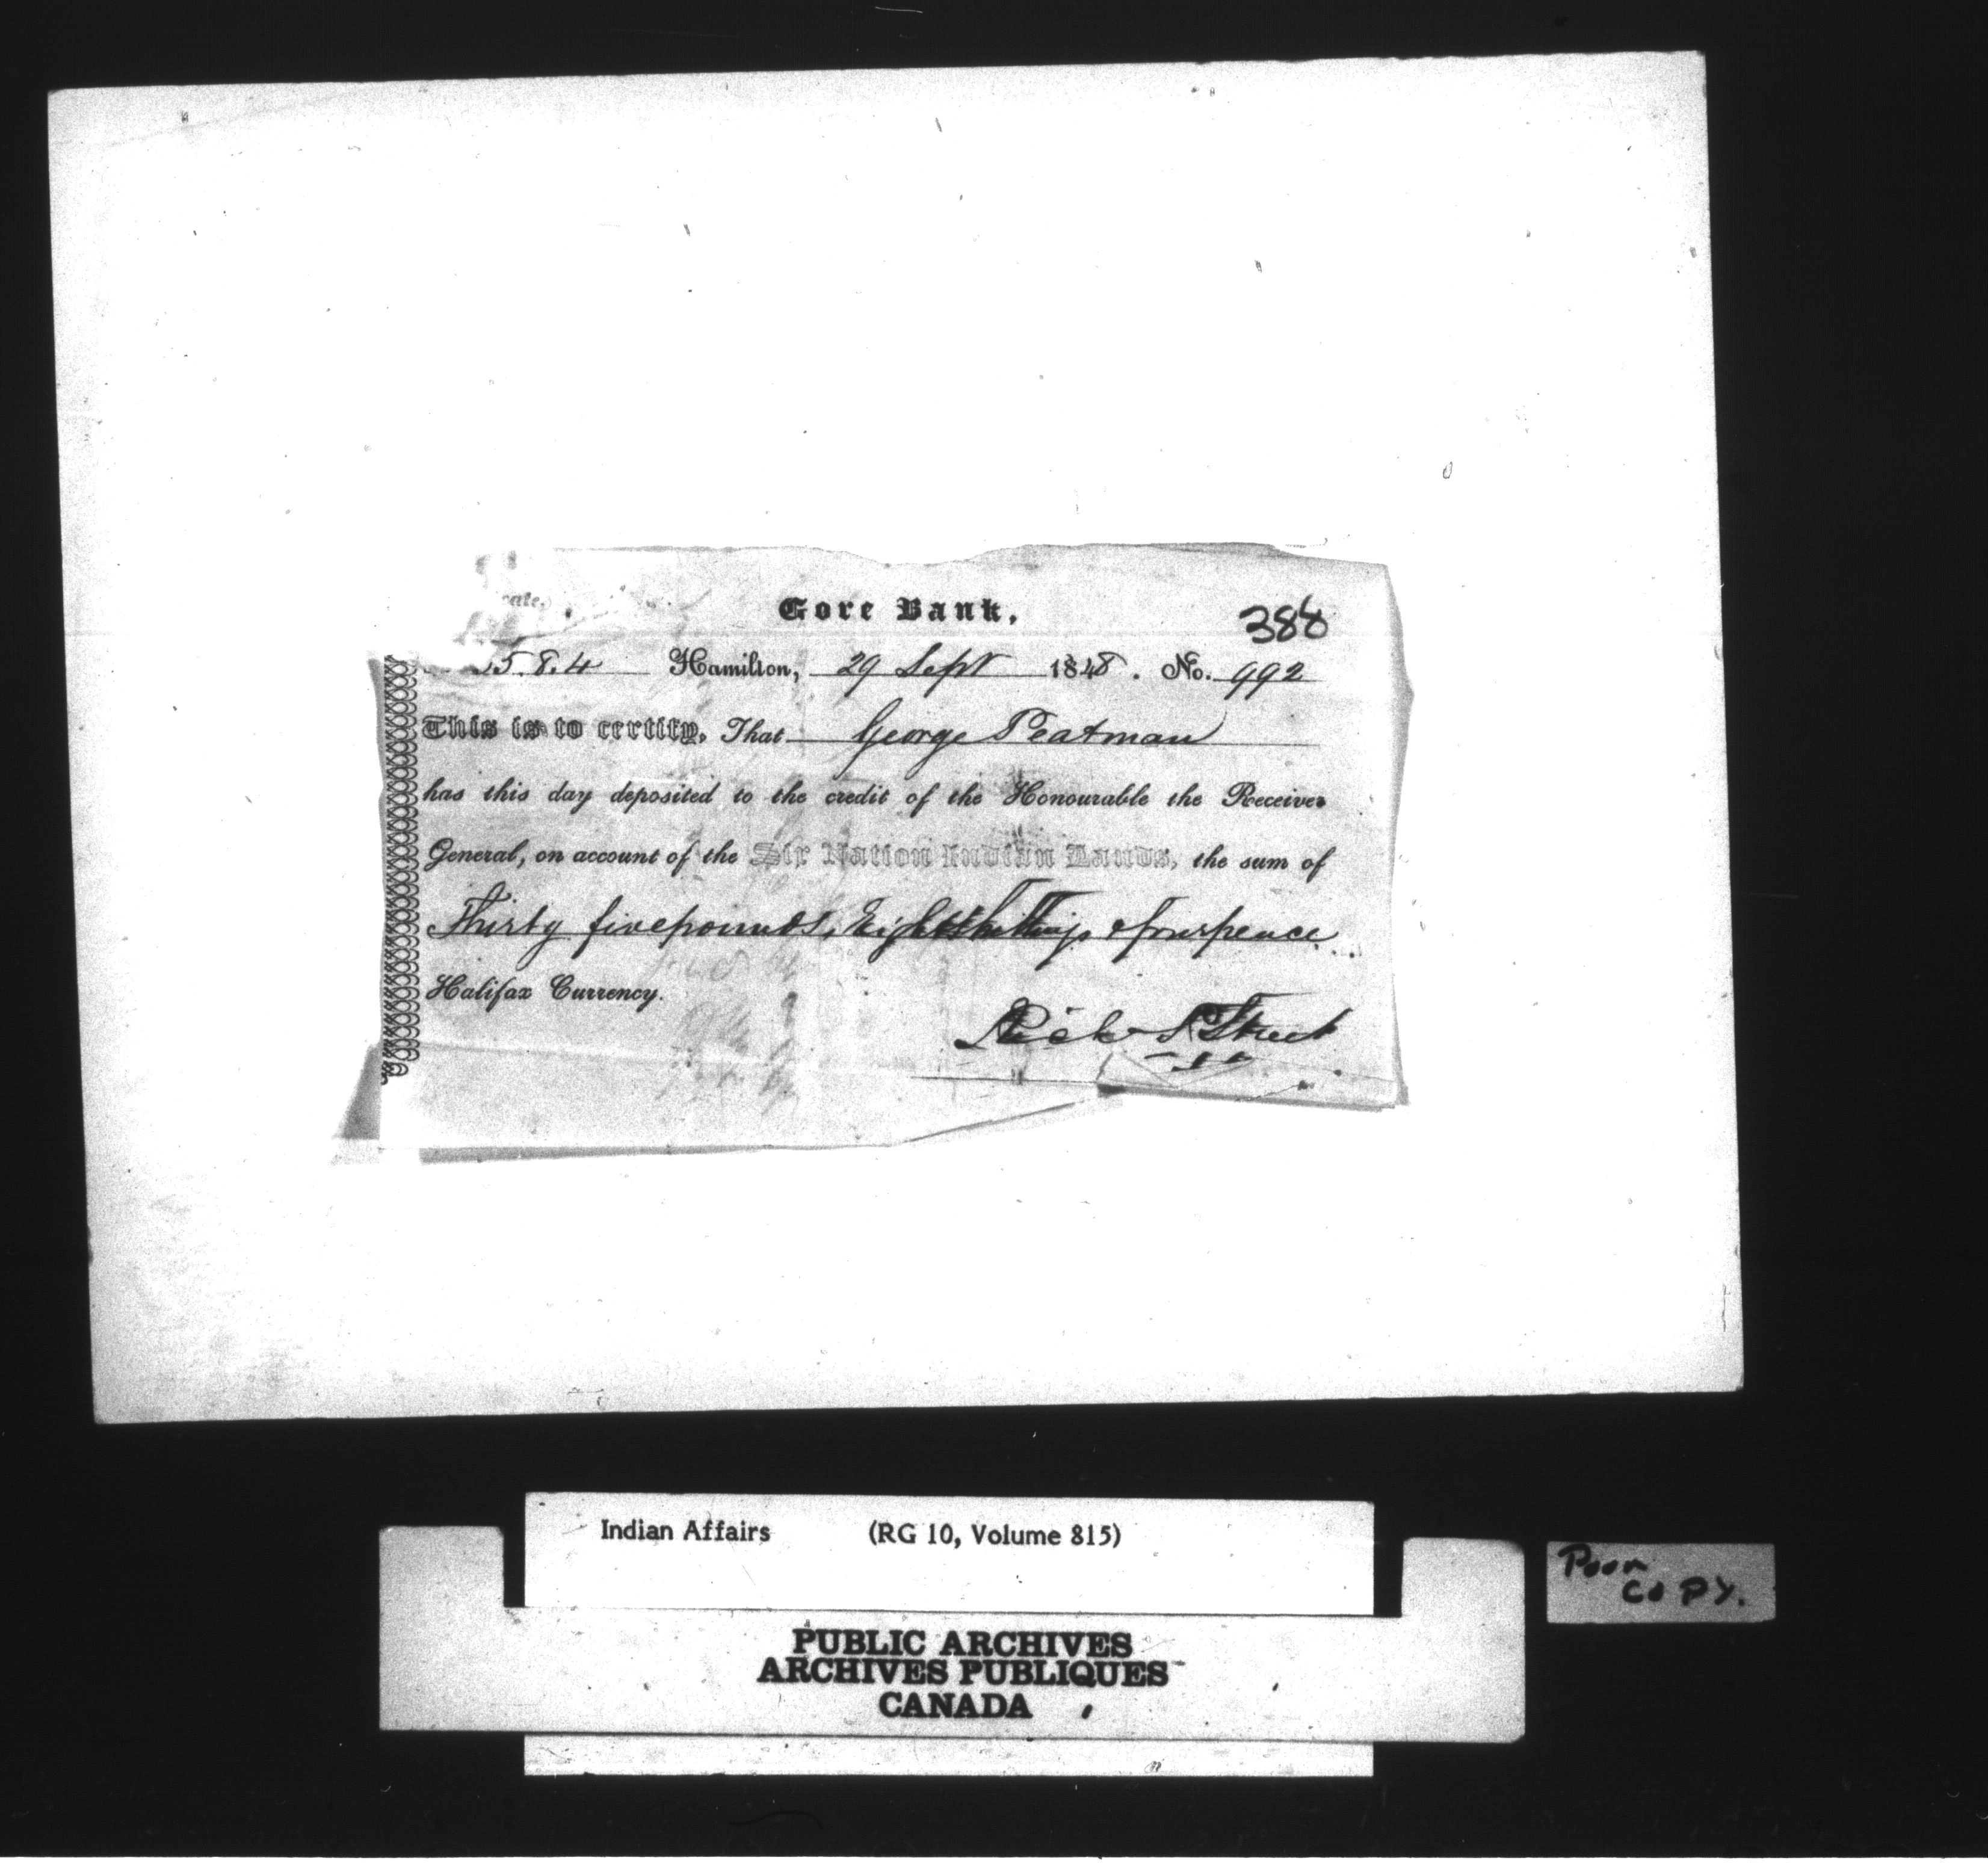 Gore Bank.
388
5.8.4 Hamilton, 29 Sept 1848. No. 992
This is to certify, That George Peatman
has this day deposited to the credit of the Honourable the Receiver
General, on account of the Six Nation Indian Lands, the sum of
Thirty five pounds, Eight Shillings & fourpence
Halifax Currency.
Street
Indian Affairs (RG 10, Volume 815)
Poor
COPY.
PUBLIC ARCHIVES
ARCHIVES PUBLIQUES
CANADA